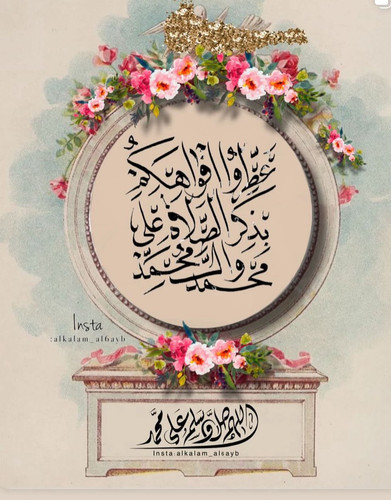 عَطِّرُوْا افْوَاهَكُمُ
بِذِكْرِ الصَّلاةِ عَلى
مُحَمَّدٍ وَالِ مُحَمَّدٍ
Insta
:alkalam_al6ayb
اللهم صل وسلم على محمد
Insta.alkalam_al6ayb